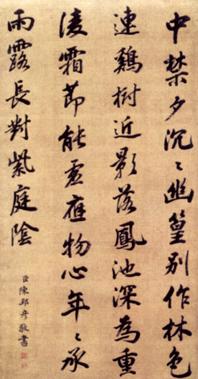 中禁夕沉〻幽篁别作林色
連鷄樹近影落鳳池深為重
凌霜節能虛應物心年〻承
雨露長對紫庭陰
臣陳邦彦敬書